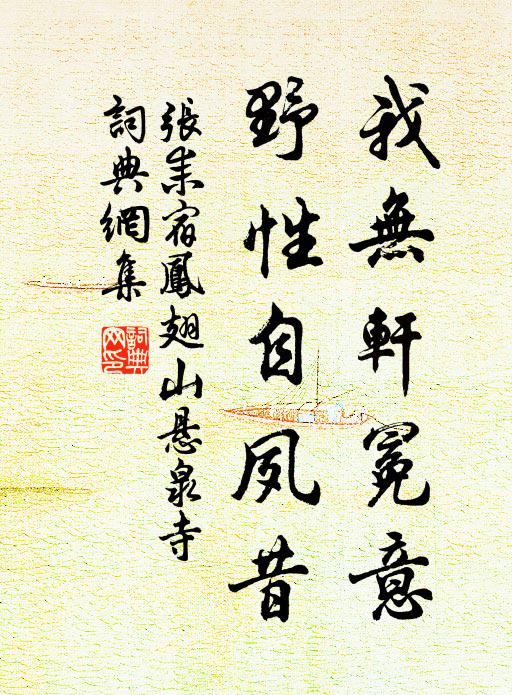 我無軒冕意
野性自夙昔
張耒宿鳳翅山懸泉寺
詞典網集
詞典
网印